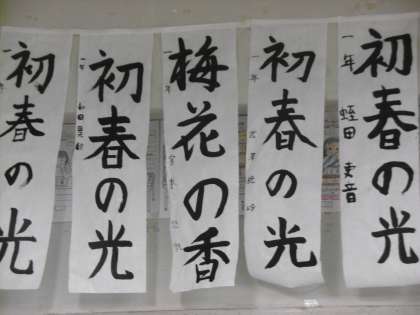 初春の光
一年
蛭田
初春の光
一年
梅花の香
初春の光
初春の光